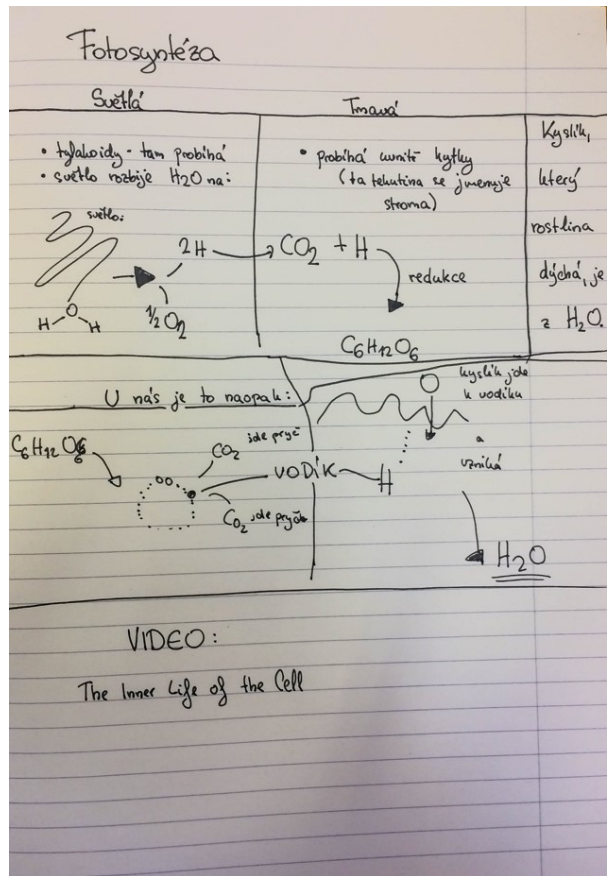 Fotosyntéza
Světlá
• tylakoidy - tam probíhá
• světlo rozbije H2O na:
světlo:
H O H
2H
½ O2
Tmavá
• probíhá uvnitř kytky
(ta tekutina se jmenuje
stroma)
CO2 + H
redukce
C6H12O6
Kyslík,
který
rostlina
dýchá, je
z H2O.
U nás je to naopak:
C6H12O6
CO2 jde pryč
CO2 jde pryč
VODÍK
H
O
kyslík jde
k vodíku
a
vzniká
H2O
VIDEO:
The Inner Life of the Cell